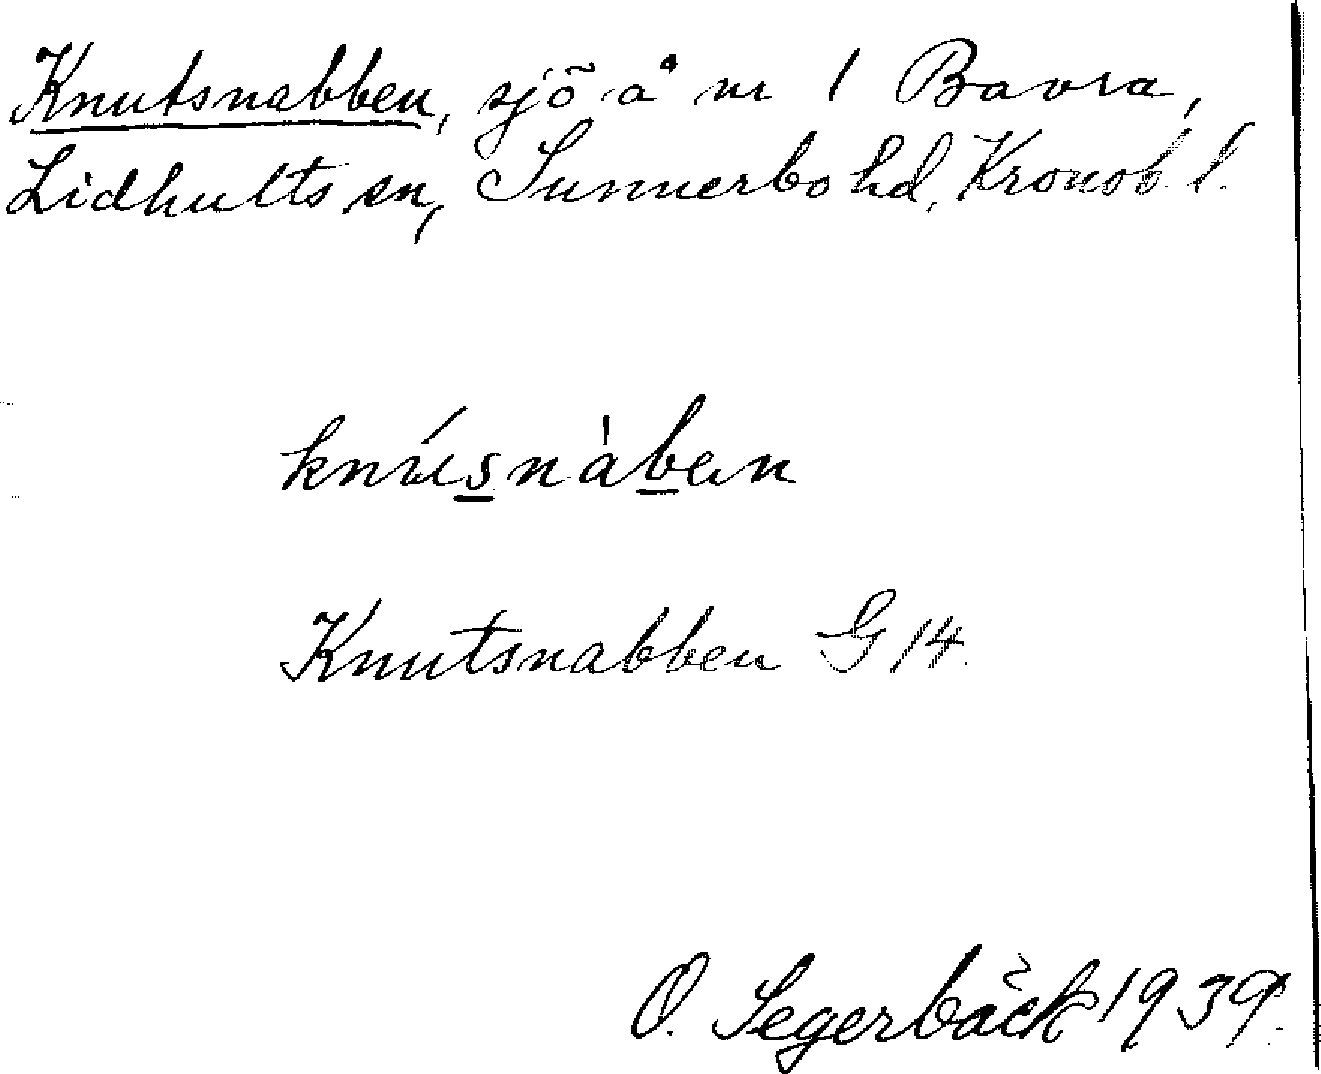 Knutsnabben, sjö å nr 1 Bavra,
Lidhults sn, Sunnerbo hd, Kronob. l.
knúsnàben
Knutsnabben G 14.
O. Segerbäck 1939.